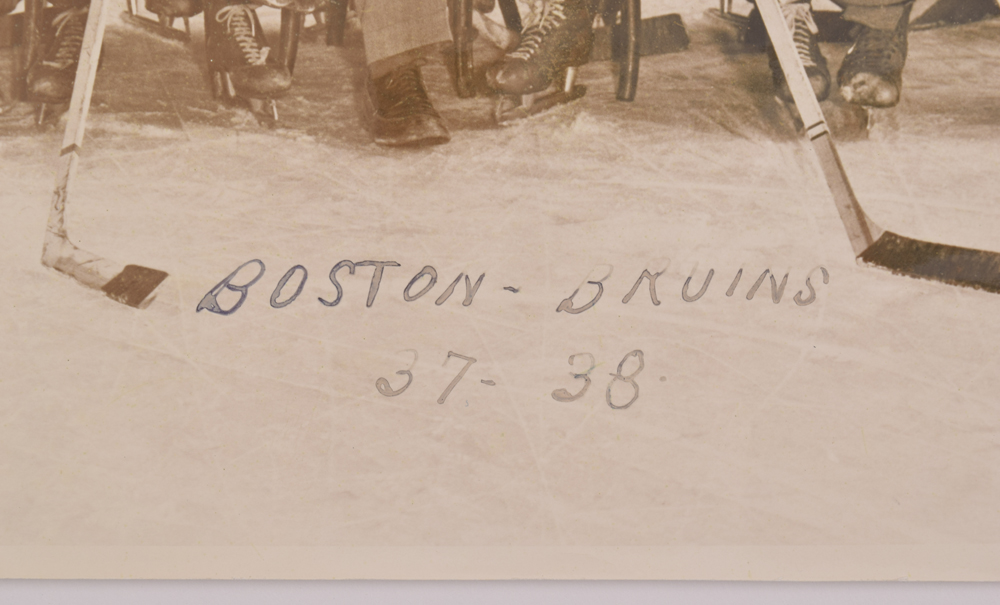 BOSTON - BRUINS
37 - 38